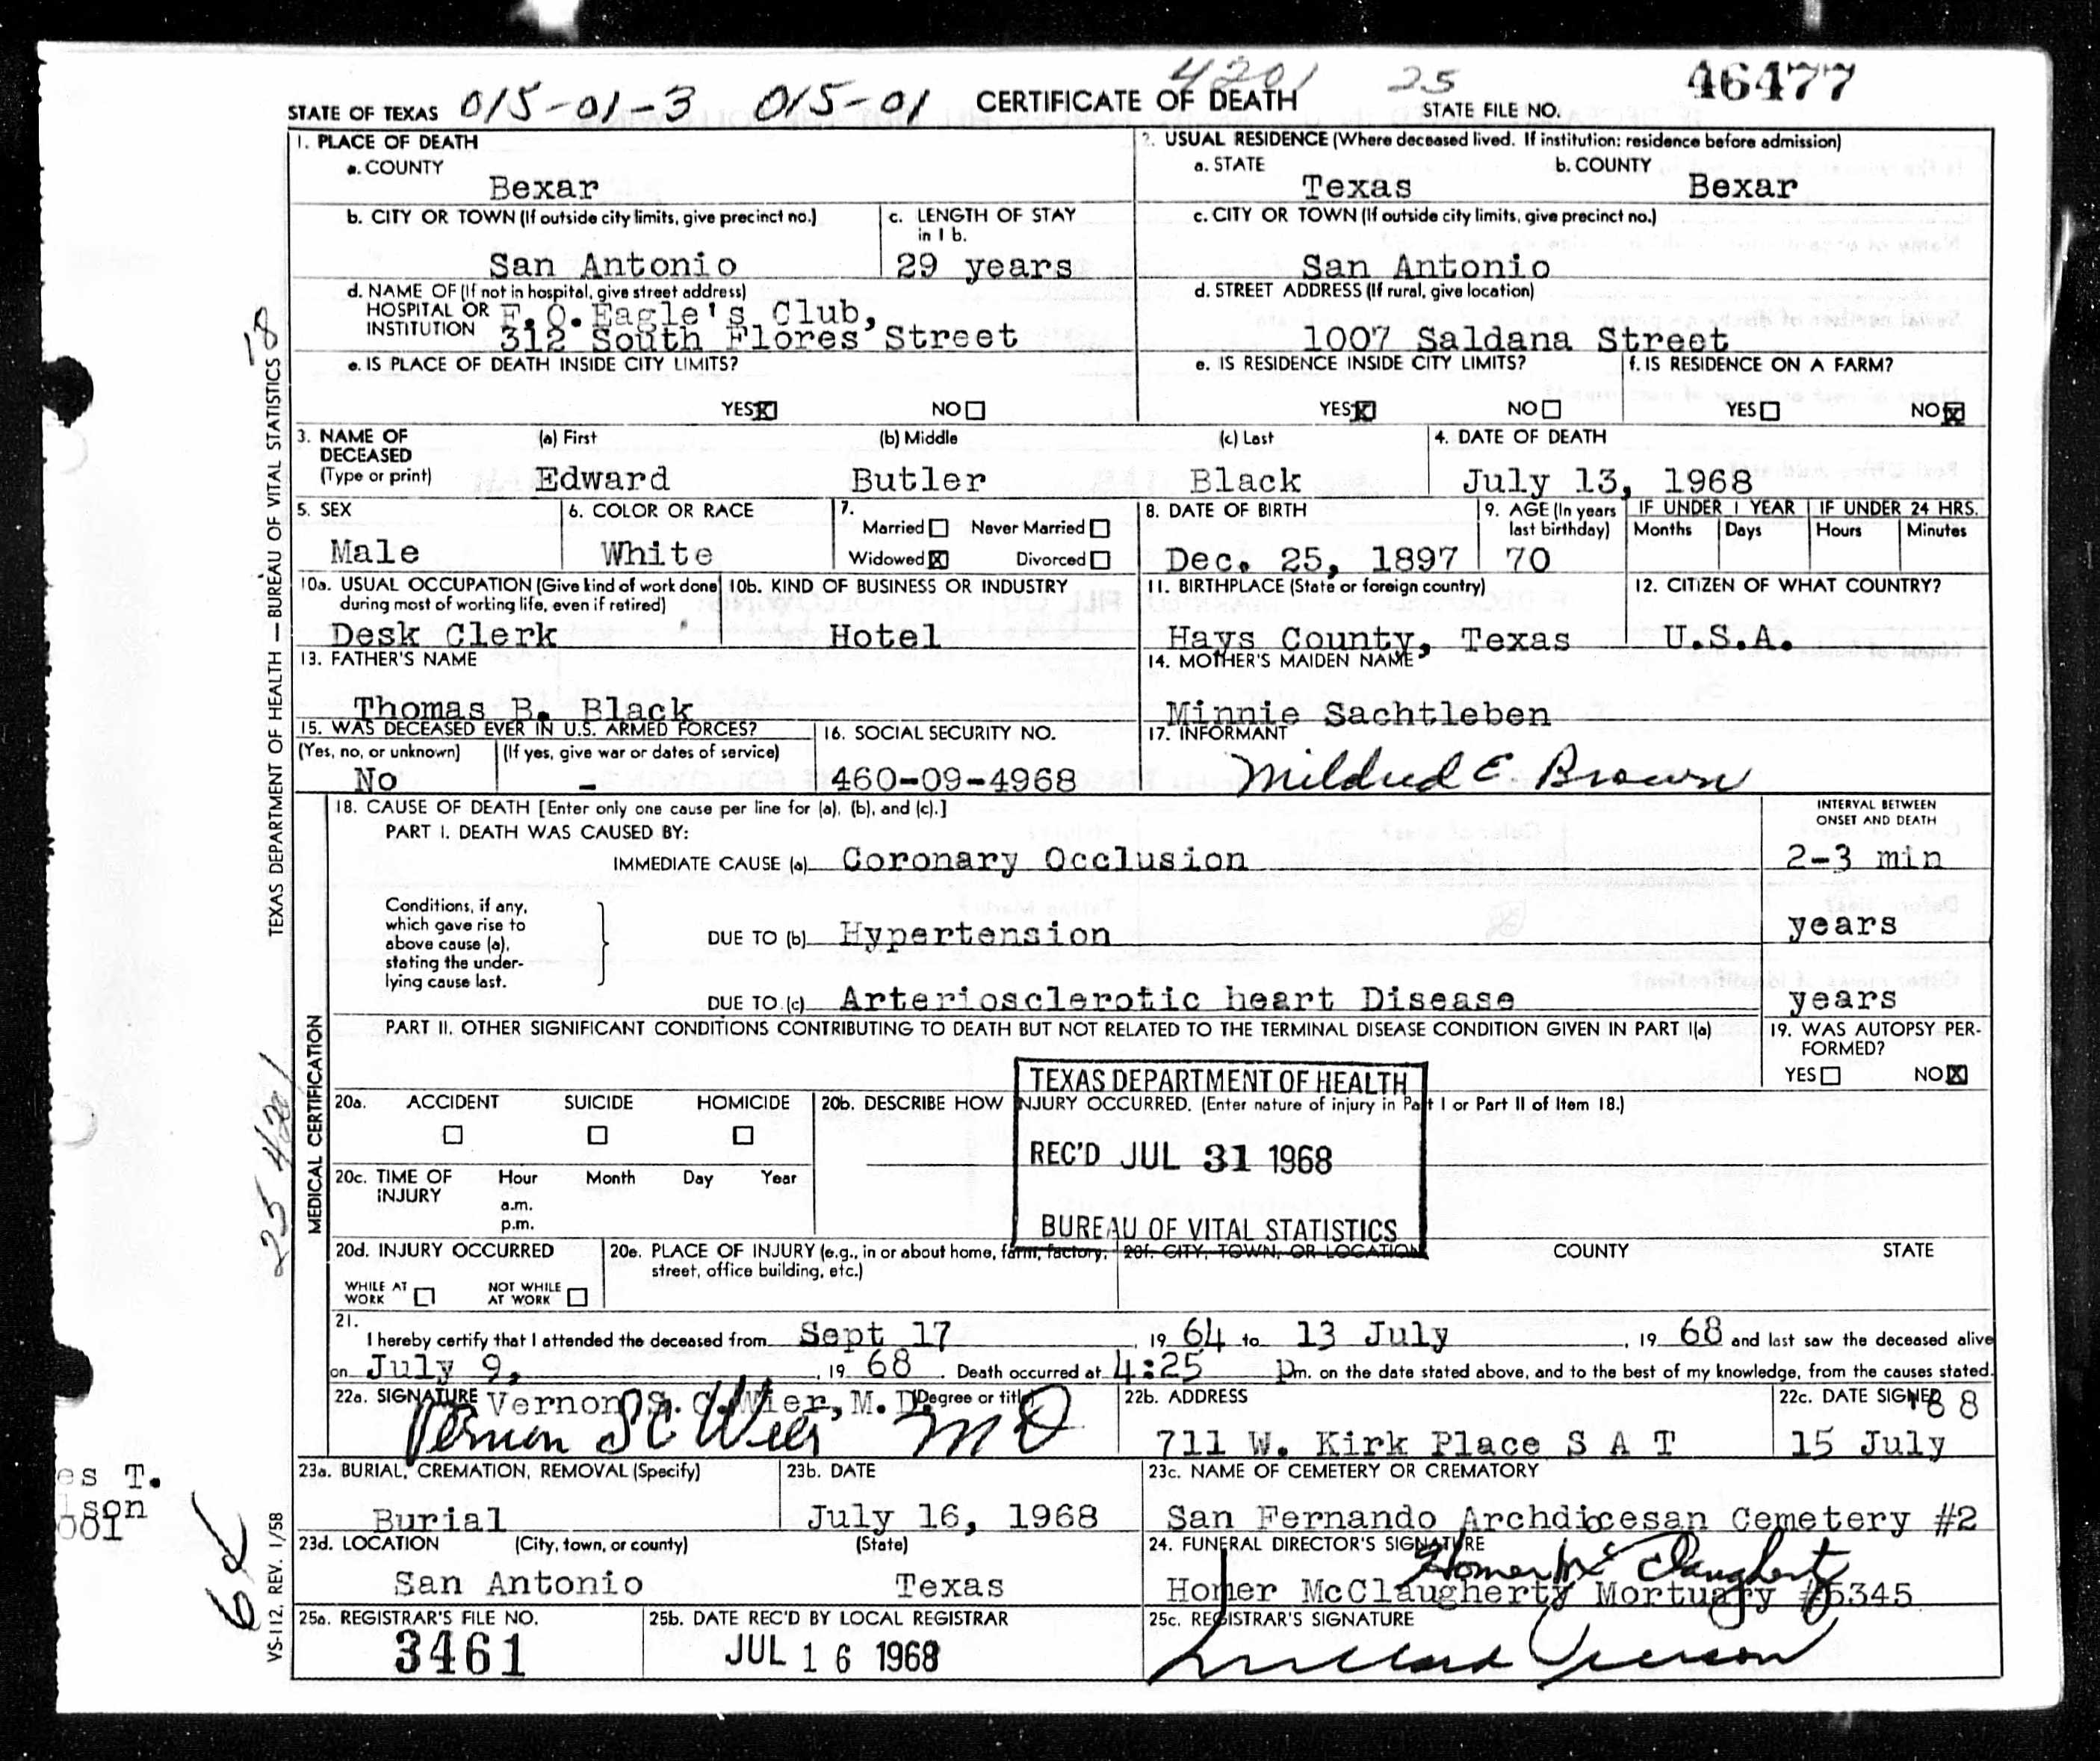 4201 25 46477
STATE OF TEXAS 015-01-3 015-01 CERTIFICATE OF DEATH STATE FILE NO.
1. PLACE OF DEATH
a. COUNTY
Bexar
2. USUAL RESIDENCE (Where deceased lived. If institution: residence before admission)
a. STATE b. COUNTY
Texas Bexar
b. CITY OR TOWN (If outside city limits, give precinct no.)
San Antonio
c. LENGTH OF STAY
in 1 b.
29 years
c. CITY OR TOWN (If outside city limits, give precinct no.)
San Antonio
d. NAME OF (If not in hospital, give street address)
HOSPITAL OR F.O.Eagle's Club,
INSTITUTION 312 South Flores Street
d. STREET ADDRESS (If rural, give location)
1007 Saldana Street
e. IS PLACE OF DEATH INSIDE CITY LIMITS?
YES☒ NO☐
e. IS RESIDENCE INSIDE CITY LIMITS?
YES☒ NO☐
f. IS RESIDENCE ON A FARM?
YES☐ NO☒
3. NAME OF
DECEASED
(Type or print)
(a) First (b) Middle (c) Last
Edward Butler Black
4. DATE OF DEATH
July 13, 1968
5. SEX
Male
6. COLOR OR RACE
White
7.
Married☐ Never Married☐
Widowed☒ Divorced☐
8. DATE OF BIRTH
Dec. 25, 1897
9. AGE (In years
last birthday)
70
IF UNDER 1 YEAR
Months Days
IF UNDER 24 HRS.
Hours Minutes
10a. USUAL OCCUPATION (Give kind of work done
during most of working life, even if retired)
Desk Clerk
10b. KIND OF BUSINESS OR INDUSTRY
Hotel
11. BIRTHPLACE (State or foreign country)
Hays County, Texas
12. CITIZEN OF WHAT COUNTRY?
U.S.A.
13. FATHER'S NAME
Thomas B. Black
14. MOTHER'S MAIDEN NAME
Minnie Sachtleben
15. WAS DECEASED EVER IN U.S. ARMED FORCES?
(Yes, no, or unknown) (If yes, give war or dates of service)
No -
16. SOCIAL SECURITY NO.
460-09-4968
17. INFORMANT
Mildred E. Brown
18. CAUSE OF DEATH [Enter only one cause per line for (a), (b), and (c).]
PART I. DEATH WAS CAUSED BY:
INTERVAL BETWEEN
ONSET AND DEATH
IMMEDIATE CAUSE (a) Coronary Occlusion 2-3 min
Conditions, if any,
which gave rise to
above cause (a),
stating the under-
lying cause last.
DUE TO (b) Hypertension years
DUE TO (c) Arteriosclerotic heart Disease years
PART II. OTHER SIGNIFICANT CONDITIONS CONTRIBUTING TO DEATH BUT NOT RELATED TO THE TERMINAL DISEASE CONDITION GIVEN IN PART I(a)
19. WAS AUTOPSY PER-
FORMED?
YES☐ NO☒
20a. ACCIDENT SUICIDE HOMICIDE
☐ ☐ ☐
20b. DESCRIBE HOW INJURY OCCURRED. (Enter nature of injury in Part I or Part II of Item 18.)
TEXAS DEPARTMENT OF HEALTH
REC'D JUL 31 1968
BUREAU OF VITAL STATISTICS
20c. TIME OF
INJURY
Hour Month Day Year
a.m.
p.m.
20d. INJURY OCCURRED
WHILE AT
WORK ☐
NOT WHILE
AT WORK ☐
20e. PLACE OF INJURY (e.g., in or about home, farm, factory,
street, office building, etc.)
20f. CITY, TOWN, OR LOCATION COUNTY STATE
21.
I hereby certify that I attended the deceased from Sept 17, 19 64 to 13 July, 19 68 and last saw the deceased alive
on July 9, 19 68. Death occurred at 4:25 pm. on the date stated above, and to the best of my knowledge, from the causes stated.
22a. SIGNATURE Vernon S. C. Wier, M. D. (Degree or title)
MD
22b. ADDRESS
711 W. Kirk Place S A T
22c. DATE SIGNED
15 July
23a. BURIAL, CREMATION, REMOVAL (Specify)
Burial
23b. DATE
July 16, 1968
23c. NAME OF CEMETERY OR CREMATORY
San Fernando Archdicesan Cemetery #2
23d. LOCATION (City, town, or county) (State)
San Antonio Texas
24. FUNERAL DIRECTOR'S SIGNATURE
Homer McClaugherty
Homer McClaugherty Mortuary #5345
25a. REGISTRAR'S FILE NO.
3461
25b. DATE REC'D BY LOCAL REGISTRAR
JUL 16 1968
25c. REGISTRAR'S SIGNATURE
TEXAS DEPARTMENT OF HEALTH — BUREAU OF VITAL STATISTICS
18
MEDICAL CERTIFICATION
25 4201
VS-112, REV. 1/58
es T.